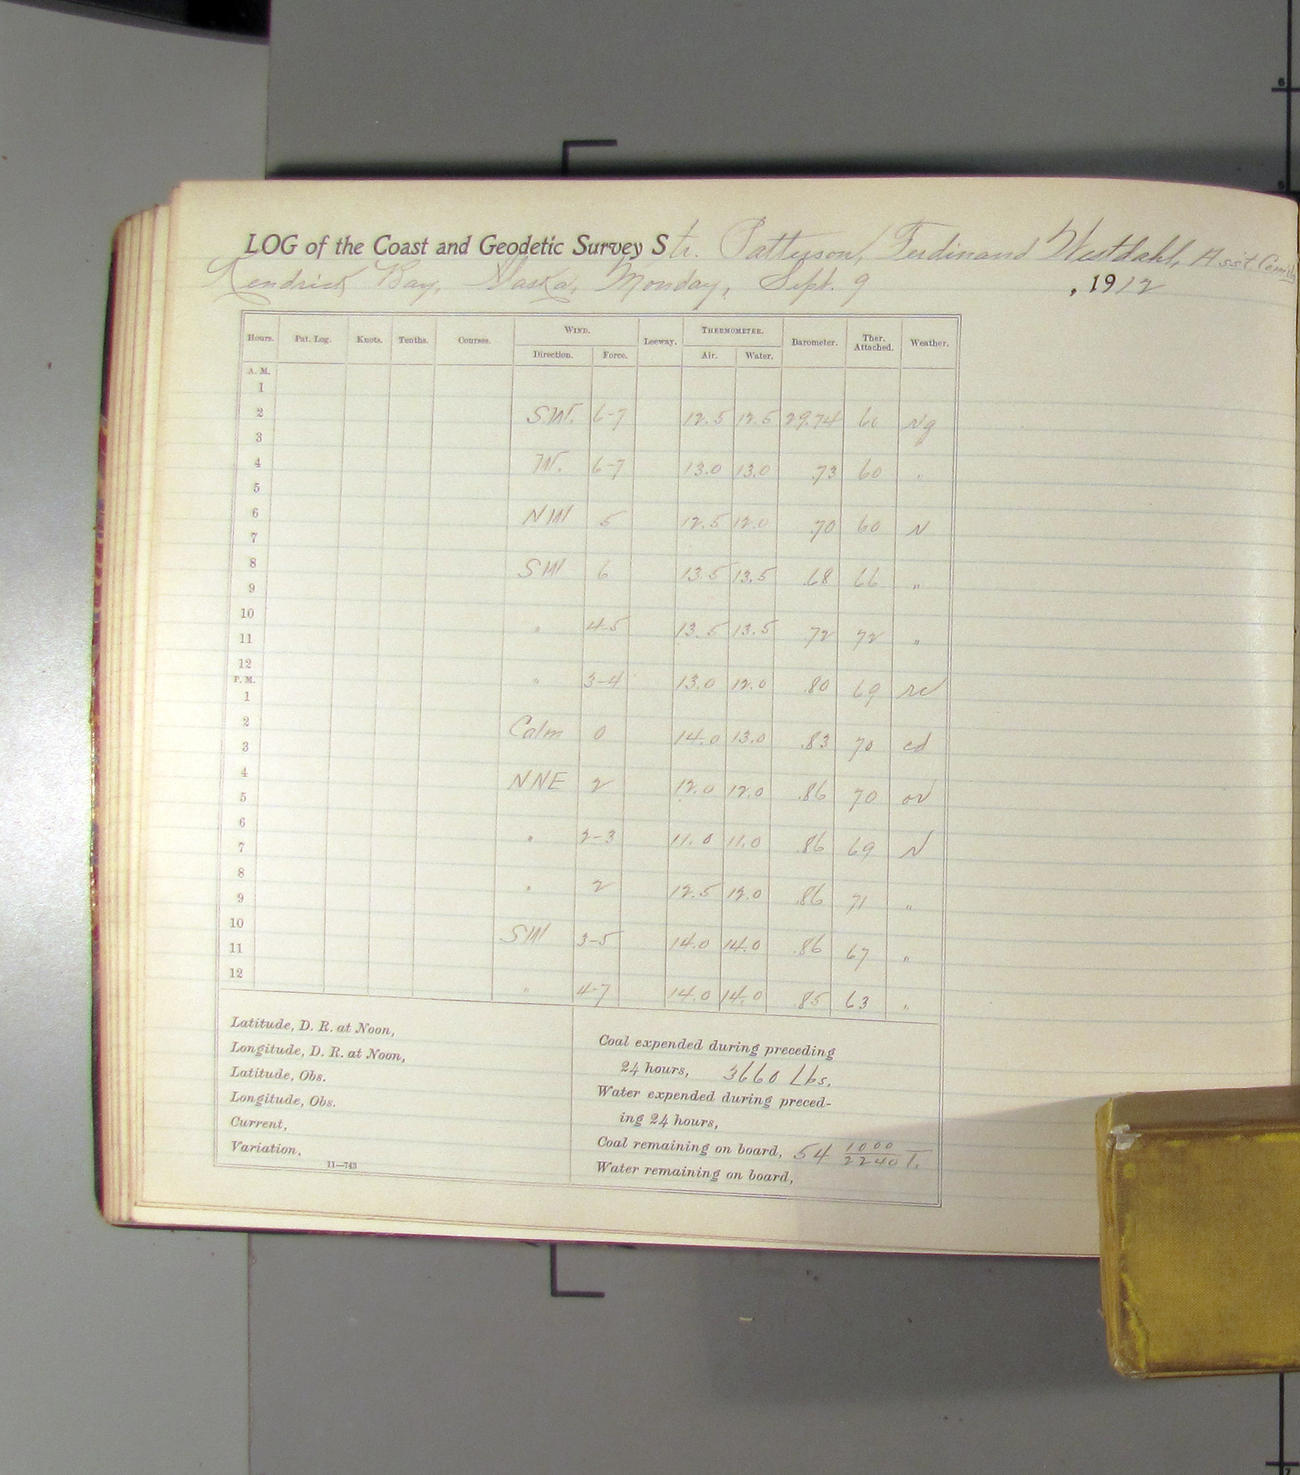 LOG of the Coast and Geodetic Survey Str. Patterson, Ferdinand Westdahl, Asst Comdg
Kendrick Bay, Alaska, Monday, Sept. 9, 1912
Hours. Pat. Log. Knots. Tenths. Courses. WIND. Leeway. THERMOMETER. Barometer. Ther. Attached. Weather.
Direction. Force. Air. Water.
A. M.
1
2 SW. 6-7 12.5 12.5 29.74 60 Ng
3
4 W. 6-7 13.0 13.0 .73 60 "
5
6 NW 5 12.5 12.0 .70 60 N
7
8 SW 6 13.5 13.5 .68 66 "
9
10 " 4-5 13.5 13.5 .72 72 "
11
12 " 3-4 13.0 12.0 .80 69 rc
P. M.
1
2 Calm 0 14.0 13.0 .83 70 cd
3
4 NNE 2 12.0 12.0 .86 70 or
5
6 " 2-3 11.0 11.0 .86 69 N
7
8 " 2 12.5 12.0 .86 71 "
9
10 SW 3-5 14.0 14.0 .86 67 "
11
12 " 4-7 14.0 14.0 .85 63 "
Latitude, D. R. at Noon,
Longitude, D. R. at Noon,
Latitude, Obs.
Longitude, Obs.
Current,
Variation,
11—743
Coal expended during preceding
24 hours, 3660 Lbs.
Water expended during preced-
ing 24 hours,
Coal remaining on board, 54 1000/2240 T.
Water remaining on board,